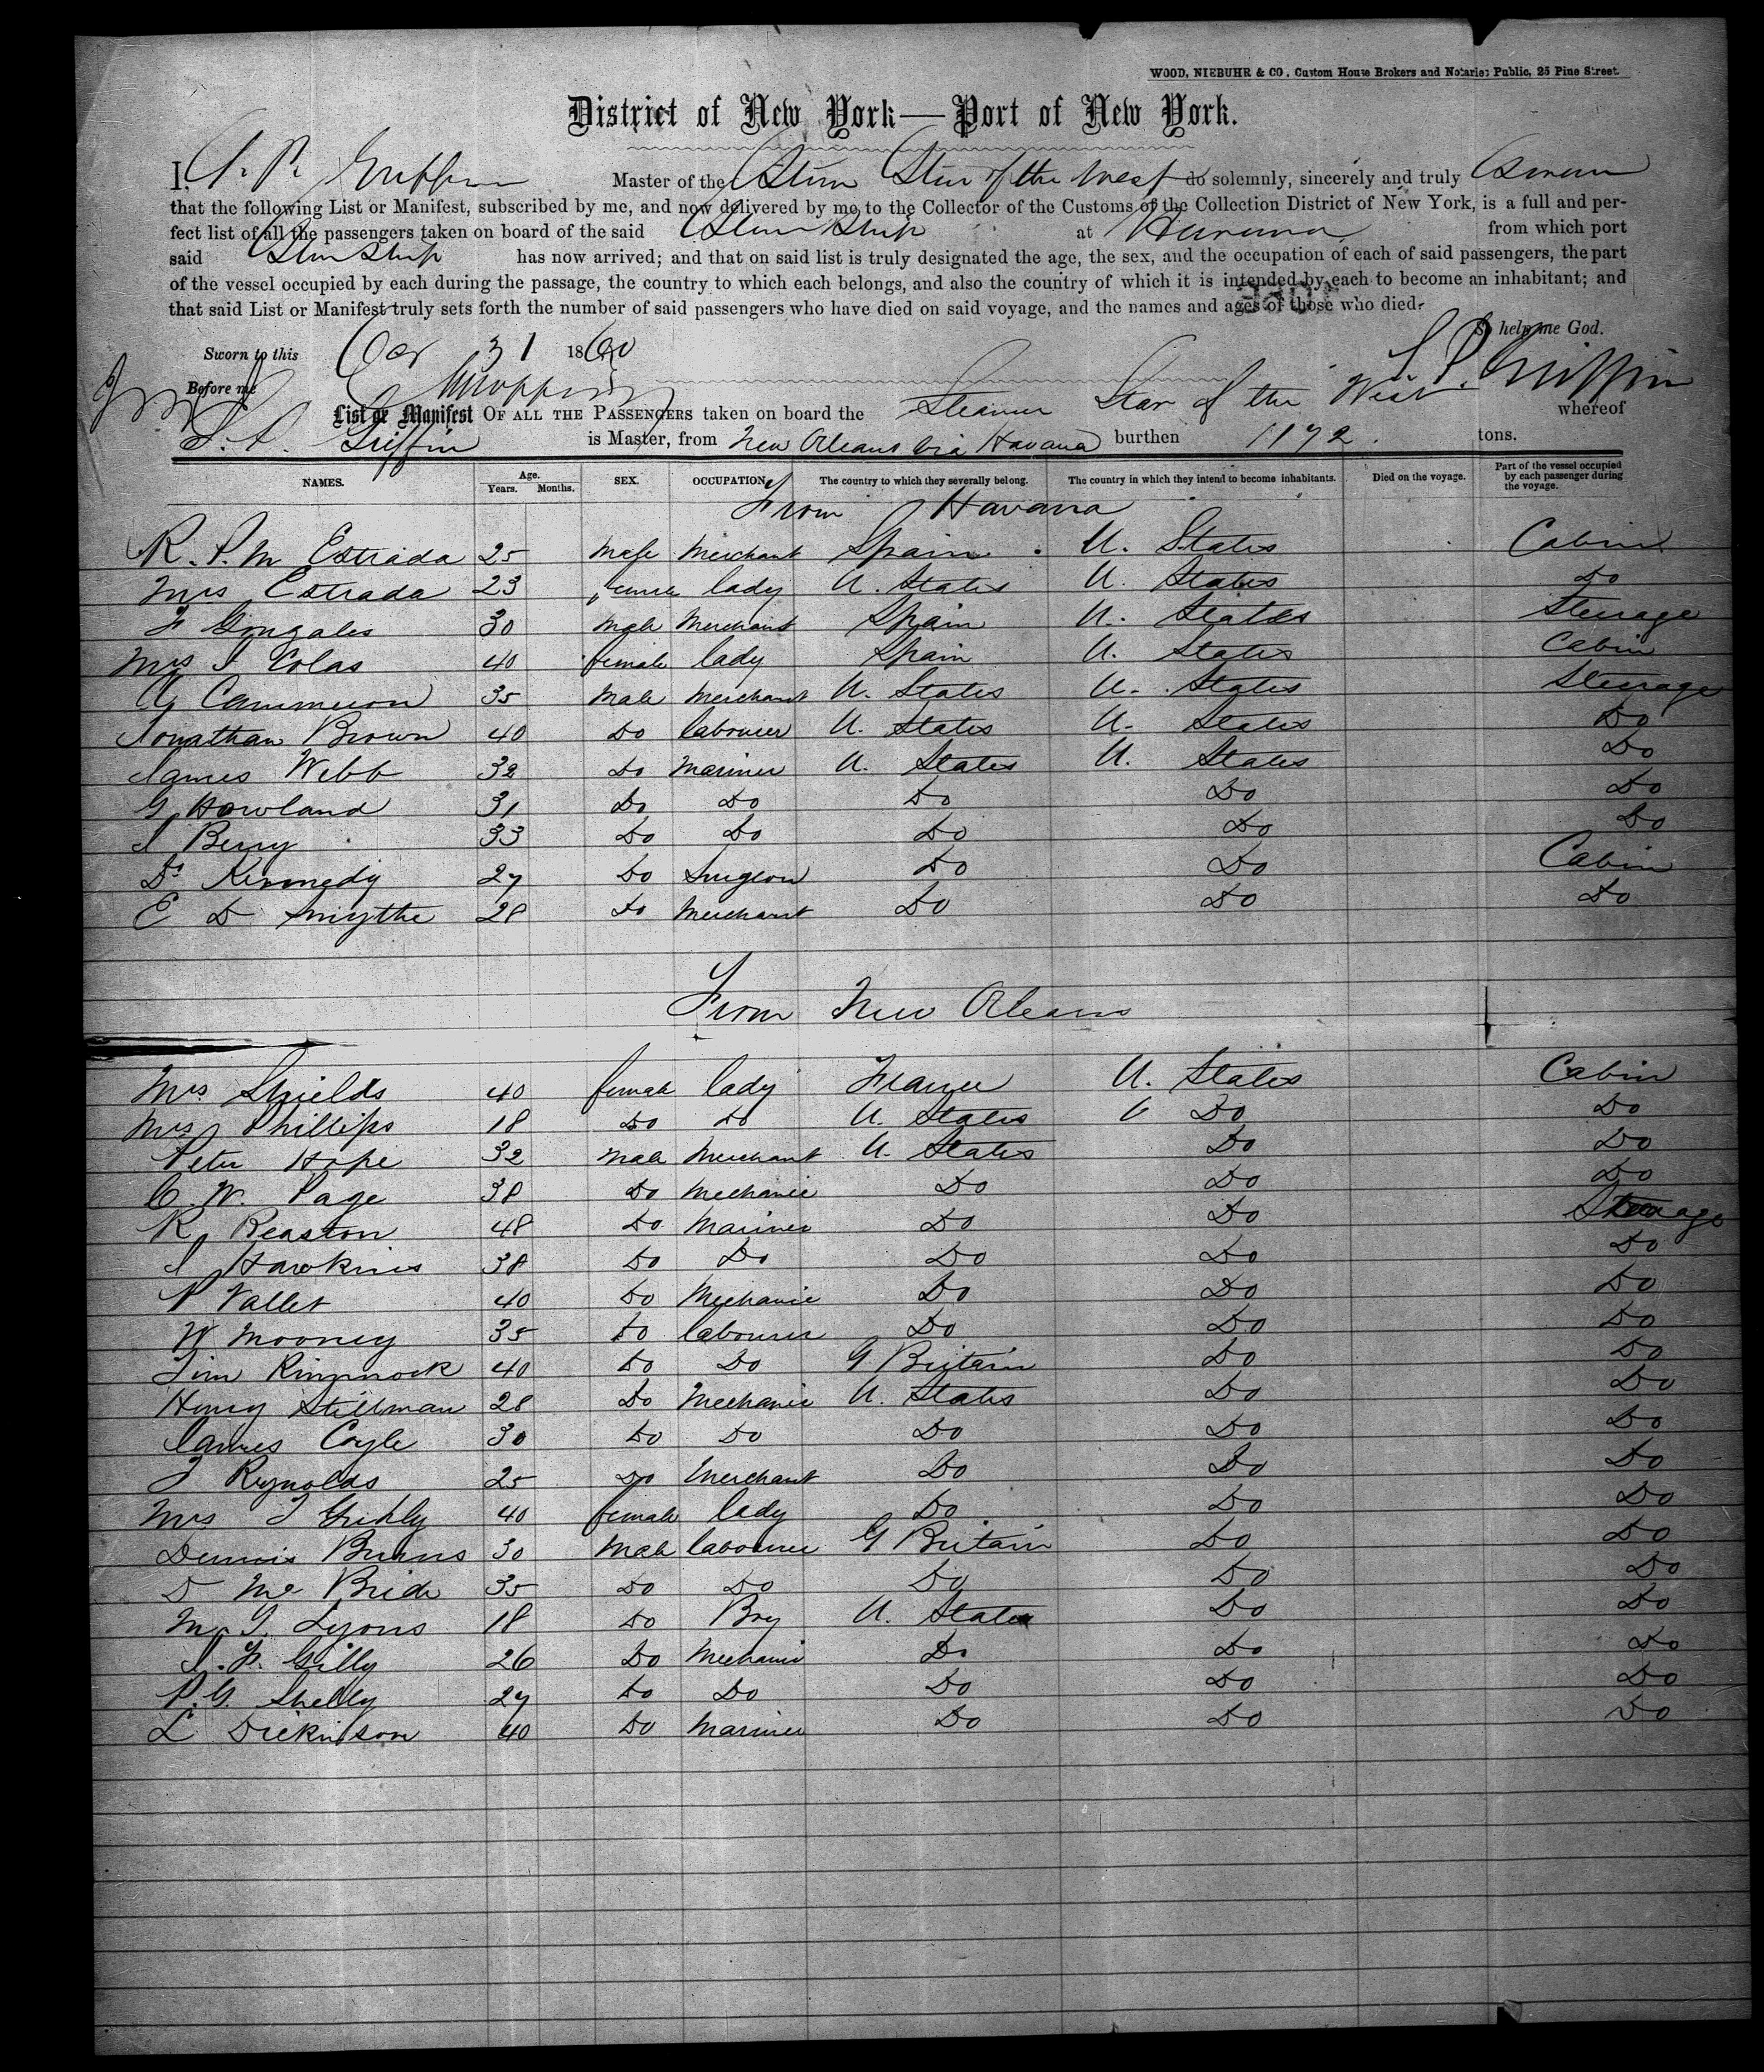 WOOD, NIEBUHR & CO, Custom House Brokers and Notaries Public, 25 Pine Street.
District of New York—Port of New York.
I, S. P. Griffin Master of the Steam Star of the West do solemnly, sincerely and truly swear
that the following List or Manifest, subscribed by me, and now delivered by me to the Collector of the Customs of the Collection District of New York, is a full and per-
fect list of all the passengers taken on board of the said Steam Ship at Havana from which port
said Steam Ship has now arrived; and that on said list is truly designated the age, the sex, and the occupation of each of said passengers, the part
of the vessel occupied by each during the passage, the country to which each belongs, and also the country of which it is intended by each to become an inhabitant; and
that said List or Manifest truly sets forth the number of said passengers who have died on said voyage, and the names and ages of those who died.
So help me God.
Sworn to this Oct 31 1860 S. P. Griffin
Before me
List or Manifest OF ALL THE PASSENGERS taken on board the Steamer Star of the West whereof
S. P. Griffin is Master, from New Orleans via Havana burthen 1172. tons.
NAMES. Age. Years. Months. SEX. OCCUPATION. The country to which they severally belong. The country in which they intend to become inhabitants. Died on the voyage. Part of the vessel occupied by each passenger during the voyage.
From Havana
R. P. M Estrada 25 Male Merchant Spain U. States Cabin
Mrs Estrada 23 female lady U. States U. States Do
F Gonzales 30 Male Merchant Spain U. States Steerage
Mrs I Colas 40 female lady Spain U. States Cabin
G Cammeron 35 Male Merchant U. States U. States Steerage
Jonathan Brown 40 Do labourer U. States U. States Do
James Webb 32 Do Mariner U. States U. States Do
G Howland 31 Do Do Do Do Do
I Berry 33 Do Do Do Do Do
Dr Kennedy 27 Do Surgeon Do Do Cabin
E D Smythe 28 Do Merchant Do Do Do
From New Orleans
Mrs Shields 40 female lady France U. States Cabin
Mrs Phillips 18 Do Do U. States Do Do
Peter Hope 32 Male Merchant U. States Do Do
C. W. Page 38 Do Mechanic Do Do Do
R Beaston 48 Do Mariner Do Do Steerage
I Hawkins 38 Do Do Do Do Do
P Vallet 40 Do Mechanic Do Do Do
W Mooney 35 Do labourer Do Do Do
Tim 40 Do Do G Britain Do Do
Henry Stillman 28 Do Mechanic U. States Do Do
James Coyle 30 Do Do Do Do Do
J Reynolds 25 Do Merchant Do Do Do
Mrs J 40 female lady Do Do Do
Dennis Burns 30 Male labourer G Britain Do Do
D Mc Bride 35 Do Do Do Do Do
M. T. Lyons 18 Do Boy U. States Do Do
J. F. Gilly 26 Do Mechanic Do Do Do
P. G. Shelly 27 Do Do Do Do Do
L Dickinson 40 Do Mariner Do Do Do